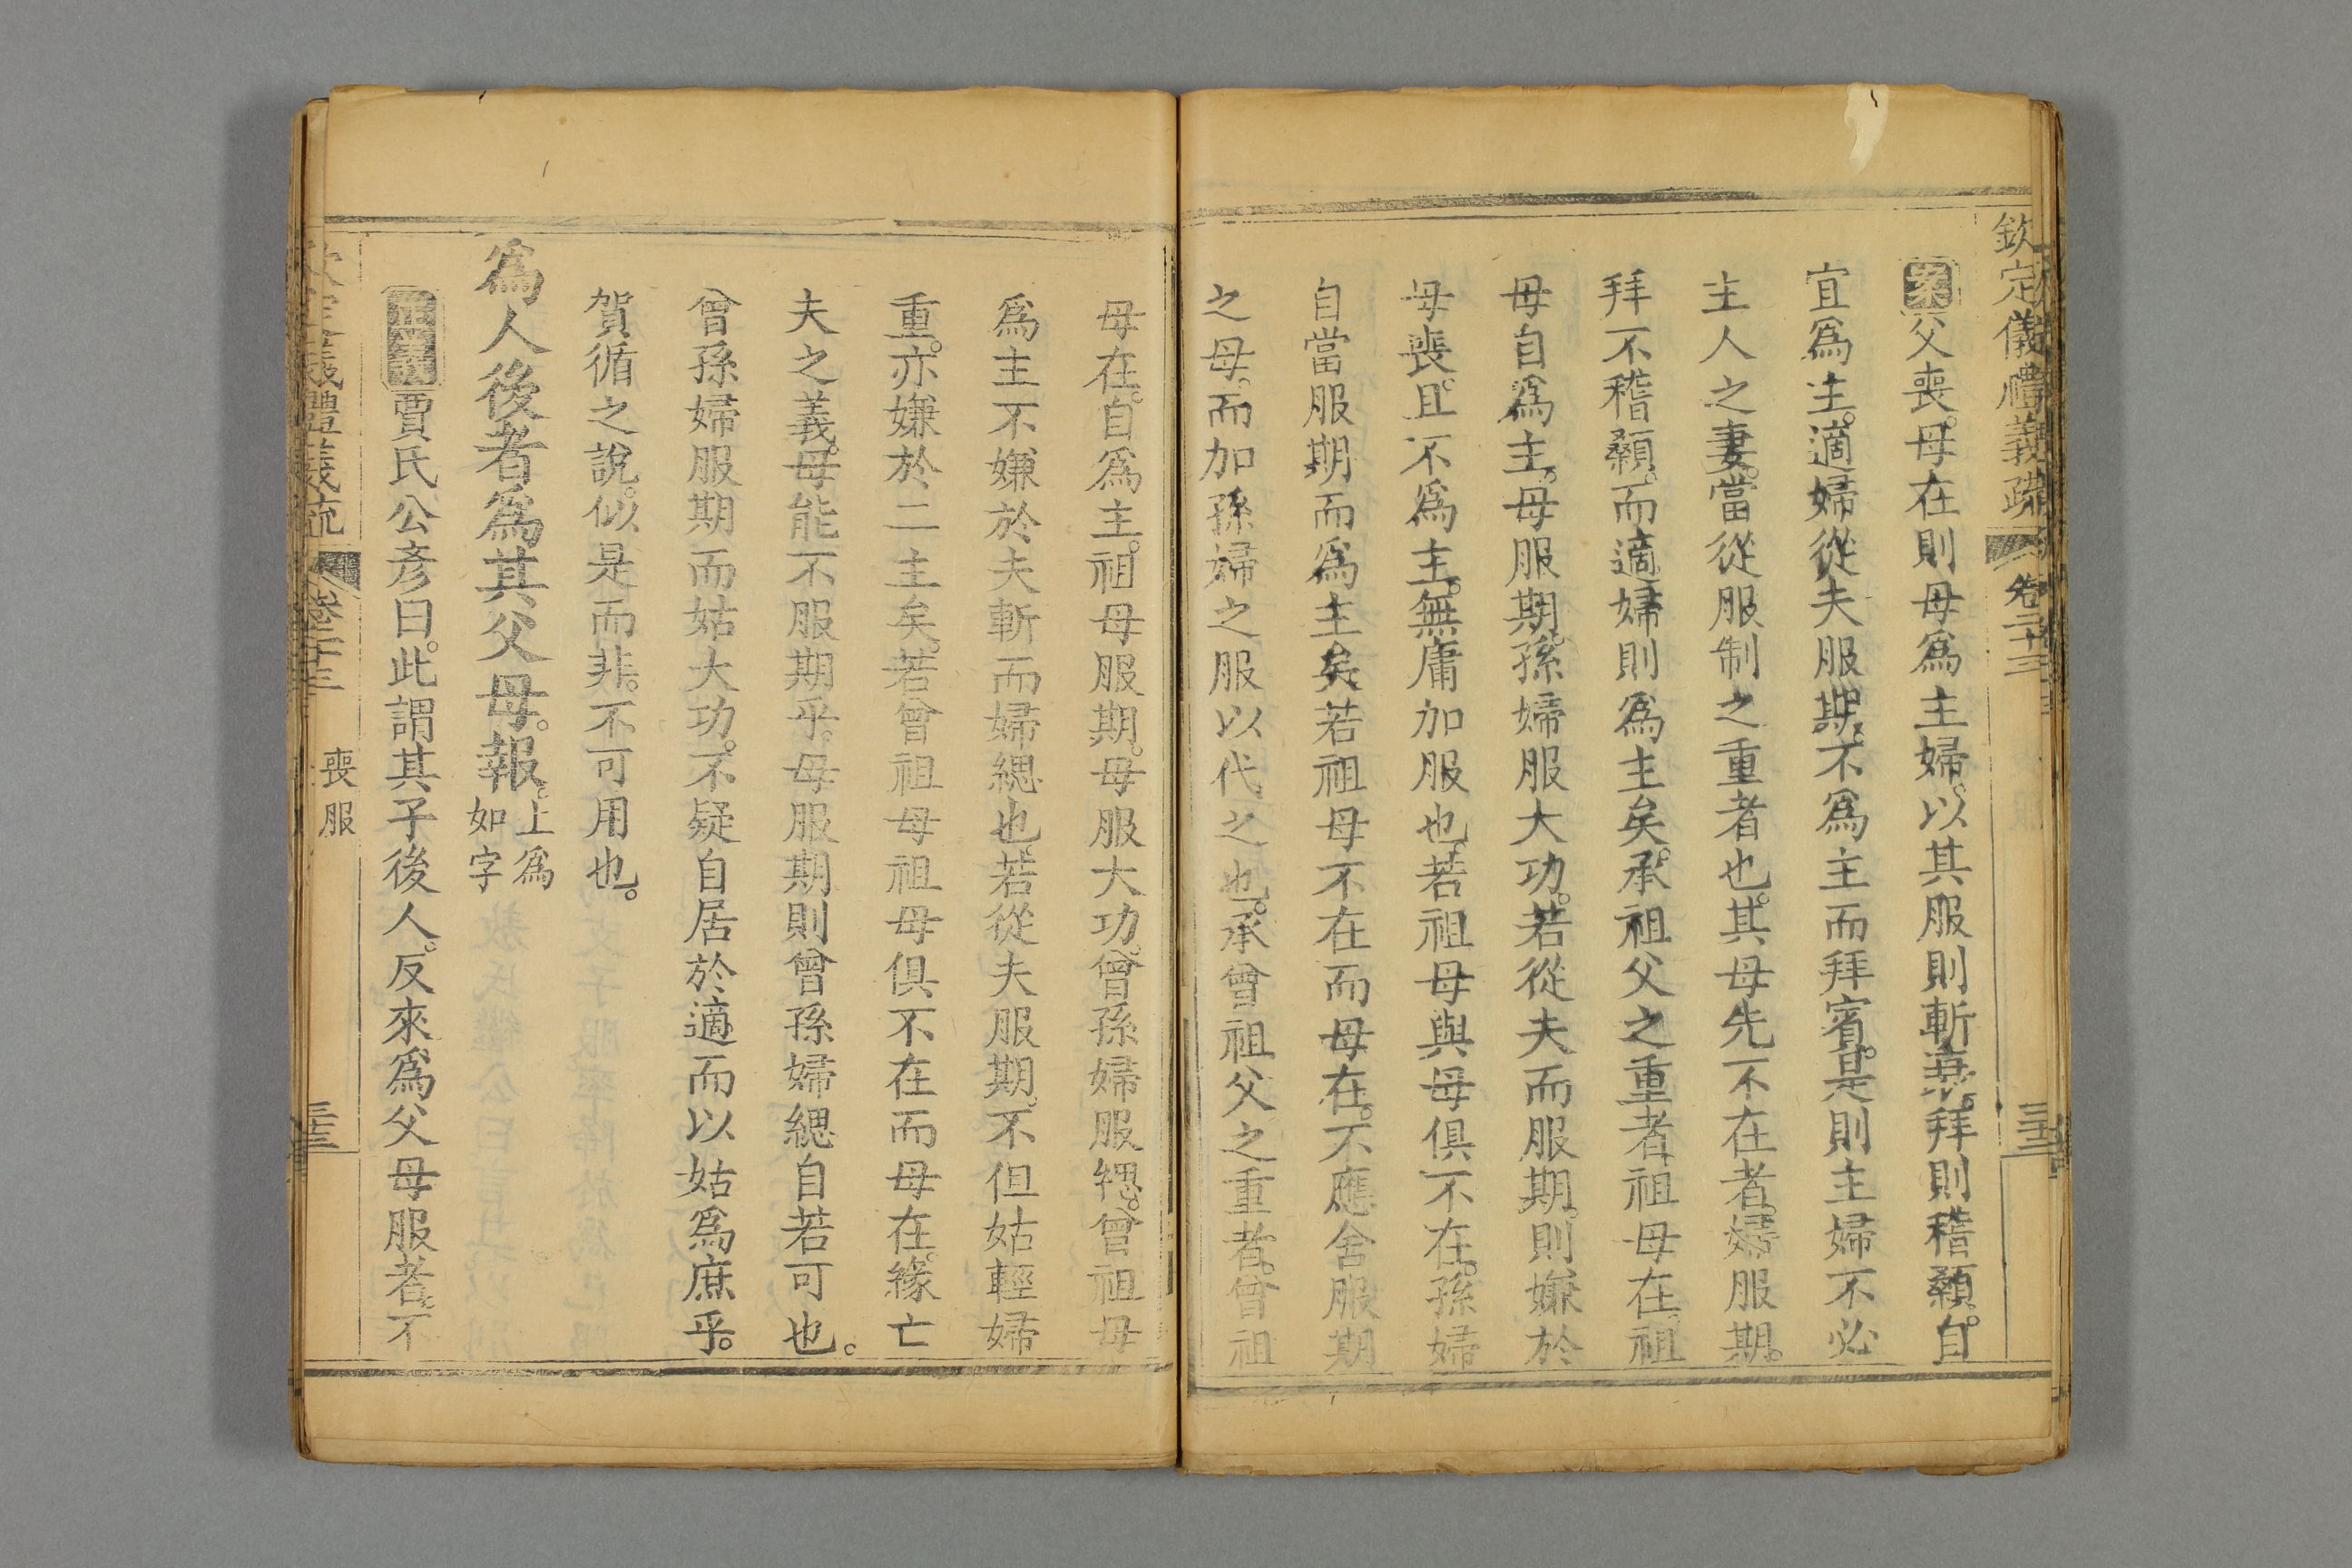 欽定儀禮義疏 卷二十三
案父喪。母在則母爲主婦。以其服則斬衰。拜則稽顙。自
宜爲主。適婦從夫服期。不爲主而拜賓。是則主婦不必
主人之妻。當從服制之重者也。其母先不在者。婦服期。
拜不稽顙。而適婦則爲主矣。承祖父之重者。祖母在。祖
母自爲主。母服期。孫婦服大功。若從夫而服期。則嫌於
母喪。且不爲主。無庸加服也。若祖母與母俱不在。孫婦
自當服期而爲主矣。若祖母不在而母在。不應舍服期
之母。而加孫婦之服以代之也。承曾祖父之重者。曾祖
母在。自爲主。祖母服期。母服大功。曾孫婦服緦。曾祖母
爲主不嫌於夫斬而婦緦也。若從夫服期。不但姑輕婦
重。亦嫌於二主矣。若曾祖母祖母俱不在而母在。緣亡
夫之義。母能不服期乎。母服期則曾孫婦緦自若可也。
曾孫婦服期而姑大功。不疑自居於適而以姑爲庶乎。
賀循之說。似是而非。不可用也。
爲人後者爲其父母。報。上爲如字
正義賈氏公彥曰。此謂其子後人。反來爲父母服者。不
卷二十三 喪服